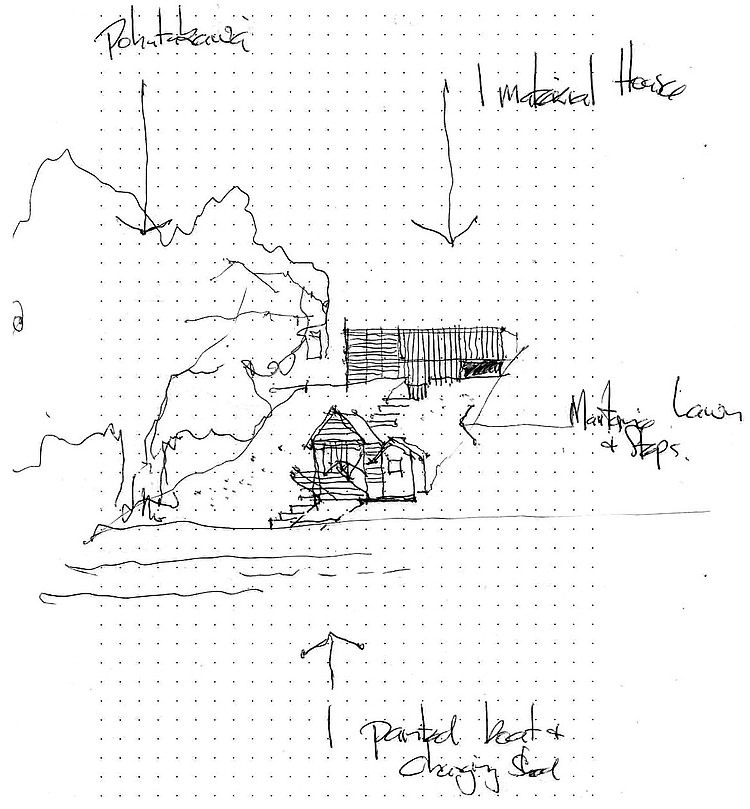 Pohutukawa
1 material House
Maintain Lawn
& Steps.
1 painted boat &
Changing Shed